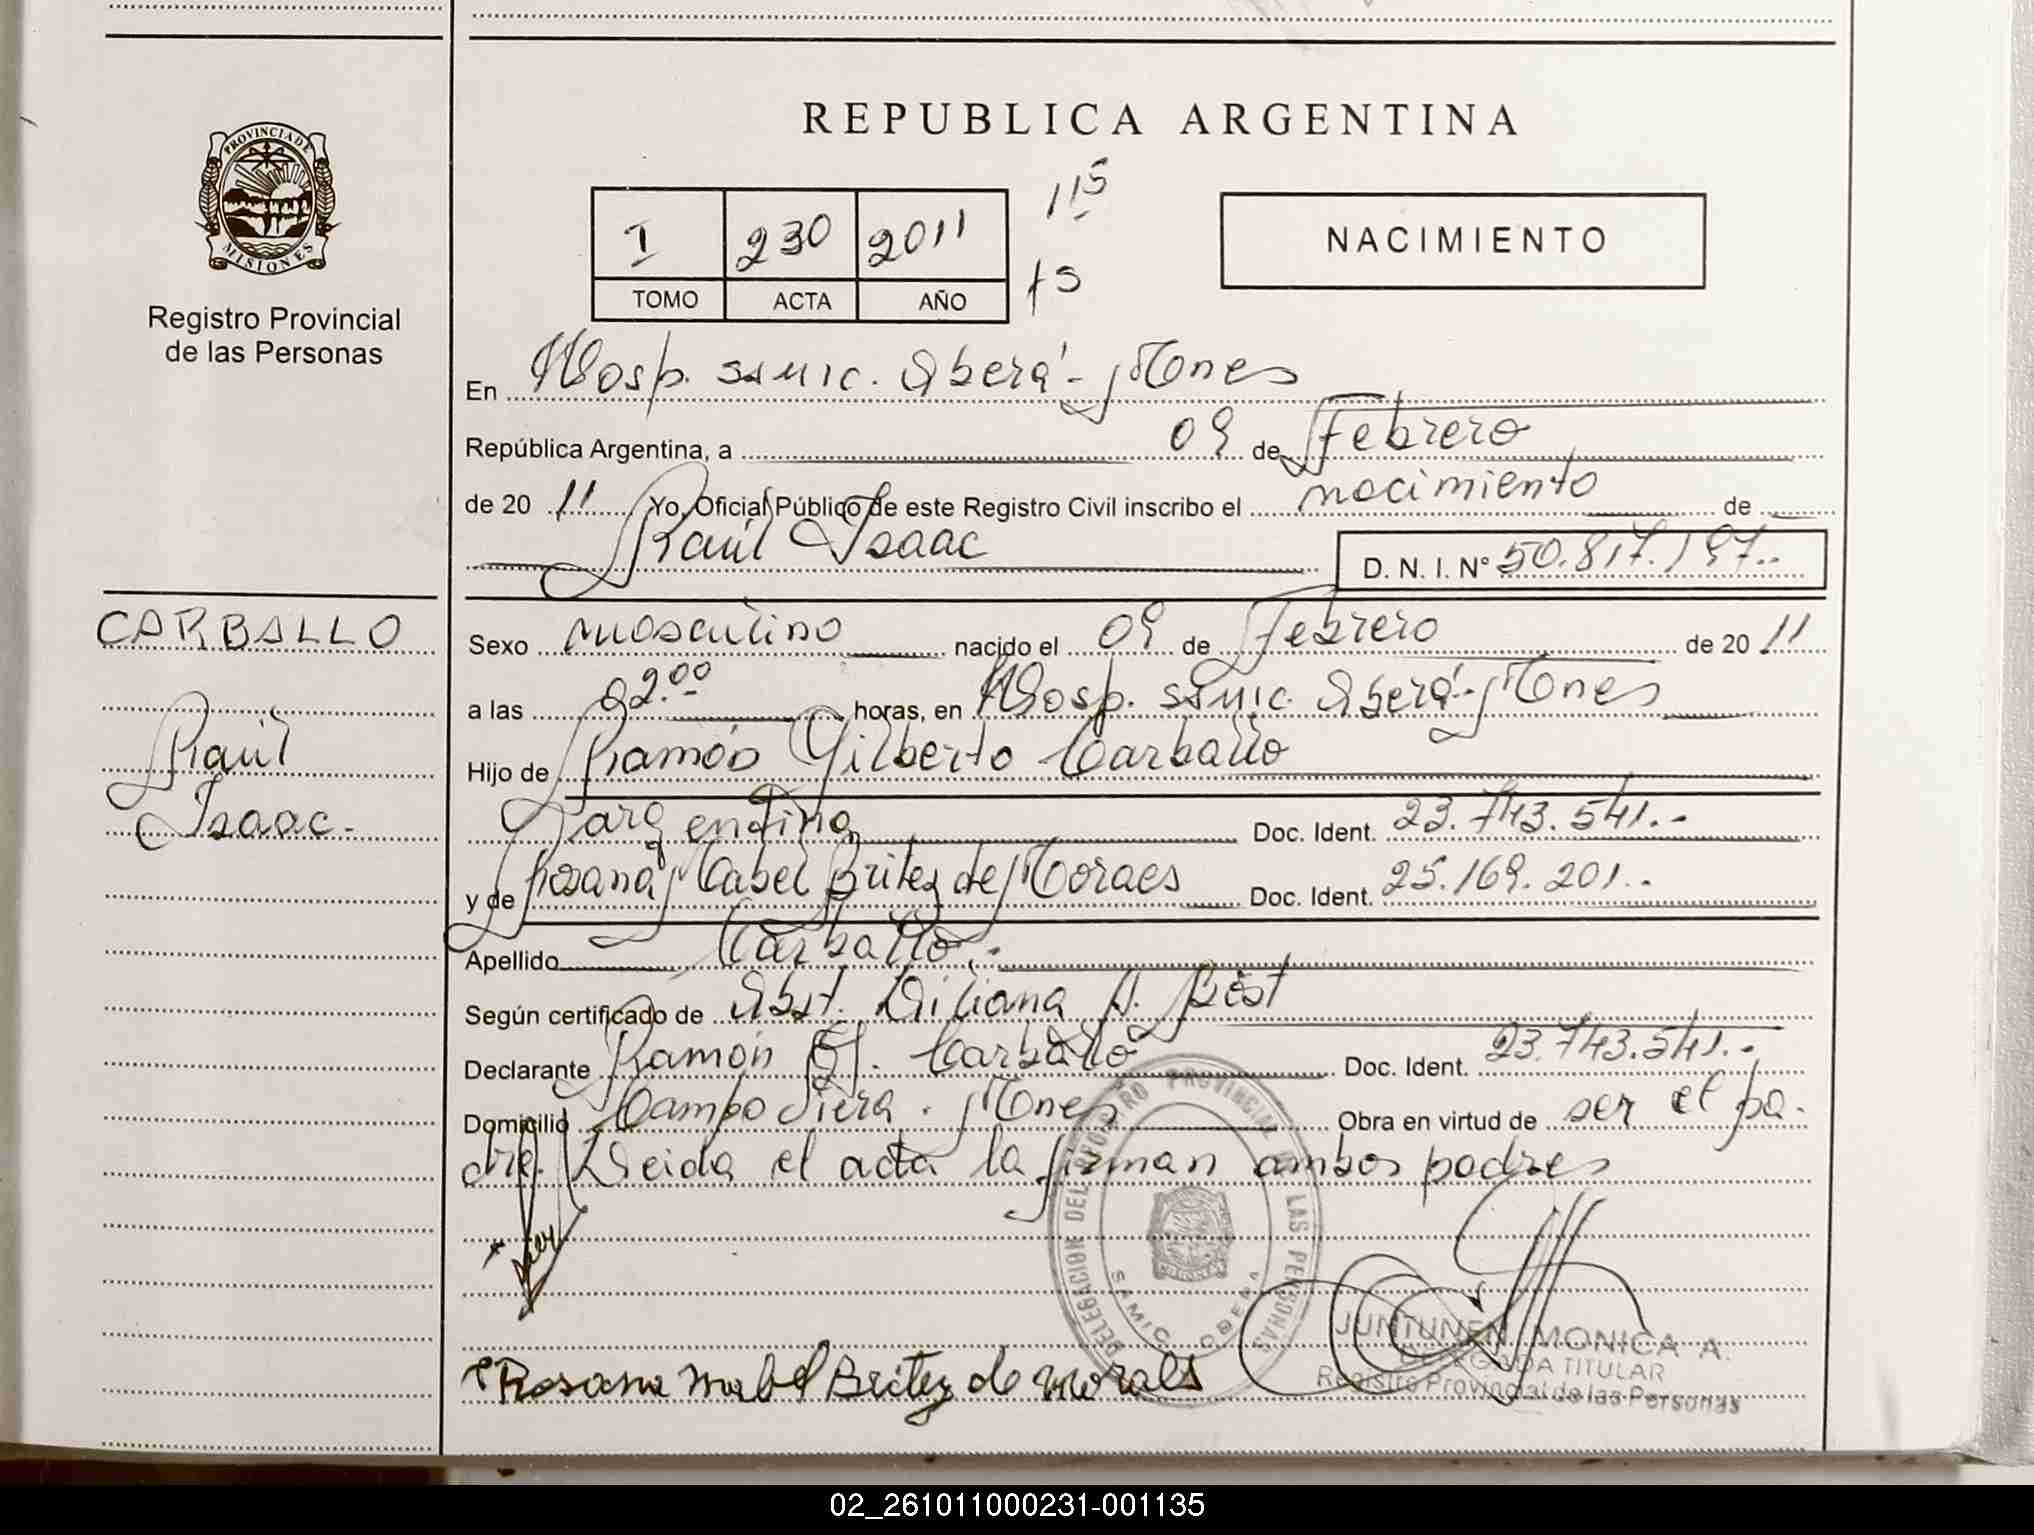 PROVINCIA DE
MISIONES
Registro Provincial
de las Personas
REPUBLICA ARGENTINA
I 230 2011
TOMO ACTA AÑO
115
NACIMIENTO
En Hosp. SAMIC. Oberá - Mones
República Argentina, a 09 de Febrero
de 20 11 Yo, Oficial Público de este Registro Civil inscribo el nacimiento de
Raúl Isaac D. N. I. N° 50.817.197.-
CARBALLO
Raúl
Isaac.-
Sexo masculino nacido el 09 de Febrero de 20 11
a las 02.00 horas, en Hosp. SAMIC. Oberá - Mones
Hijo de Ramón Gilberto Carballo
argentino Doc. Ident. 23.743.541.-
y de Rosana Mabel Britez de Moraes Doc. Ident. 25.169.201.-
Apellido Carballo.-
Según certificado de Obst. Liliana A. Best
Declarante Ramón G. Carballo Doc. Ident. 23.743.541.-
Domicilio Campo Viera. Mones Obra en virtud de ser el pa-
dre. Leida el acta la firman ambos padres
DELEGACION DEL REGISTRO PROVINCIAL DE LAS PERSONAS
SAMIC OBERA
Rosana Mabel Britez de Moraes
JUNTUNEN, MONICA A.
DELEGADA TITULAR
Registro Provincial de las Personas
02_261011000231-001135